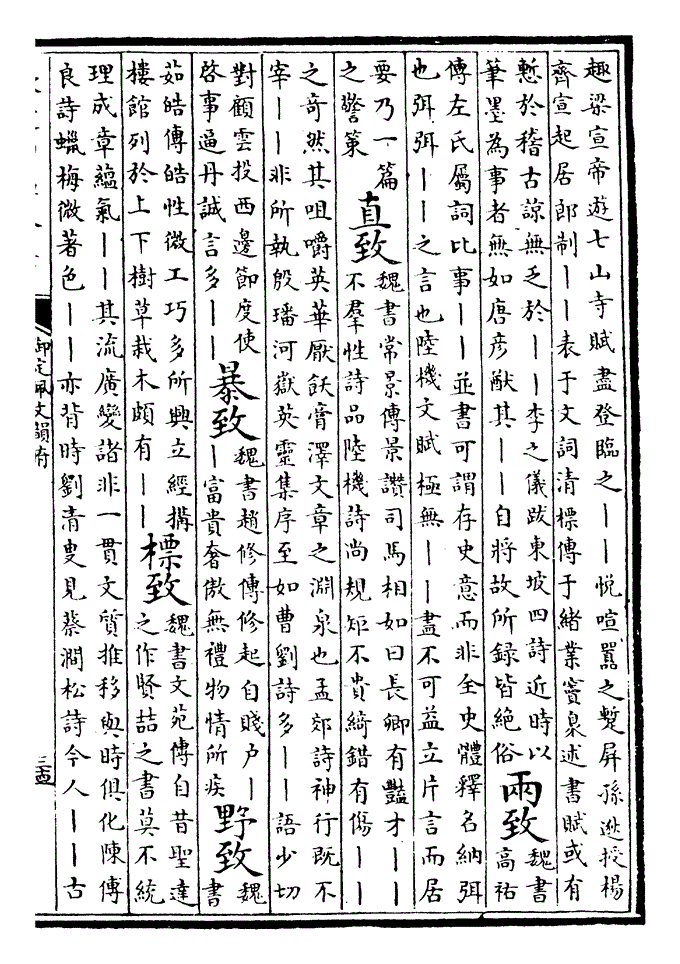 趣梁宣帝遊七山寺賦盡登臨之丨丨悦喧囂之蹔屏孫逖授楊
齊宣起居郎制丨丨表于文詞清標傳于緒業竇臮述書賦或有
慙於稽古諒無乏於丨丨李之儀跋東坡四詩近時以
筆墨為事者無如唐彦猷其丨丨自將故所録皆絶俗
兩致
魏書
高祐
傳左氏屬詞比事丨丨並書可謂存史意而非全史體釋名納弭
也弭弭丨丨之言也陸機文賦極無丨丨盡不可益立片言而居
要乃一篇
之警策
直致
魏書常景傳景讚司馬相如曰長卿有豔才丨丨
不羣性詩品陸機詩尚規矩不貴綺錯有傷丨丨
之奇然其咀嚼英華厭飫膏澤文章之淵泉也孟郊詩神行既不
宰丨丨非所執殷璠河嶽英靈集序至如曹劉詩多丨丨語少切
對顧雲投西邊節度使
啓事逼丹誠言多丨丨
暴致
魏書趙修傳修起自賤户丨
丨富貴奢傲無禮物情所疾
野致
魏
書
茹皓傳皓性微工巧多所興立經搆
樓館列於上下樹草栽木頗有丨丨
標致
魏書文苑傳自昔聖達
之作賢喆之書莫不統
理成章蘊氣丨丨其流廣變諸非一貫文質推移與時俱化陳傅
良詩蠟梅微著色丨丨亦背時劉清叟見蔡澗松詩今人丨丨古
御定佩文韻府